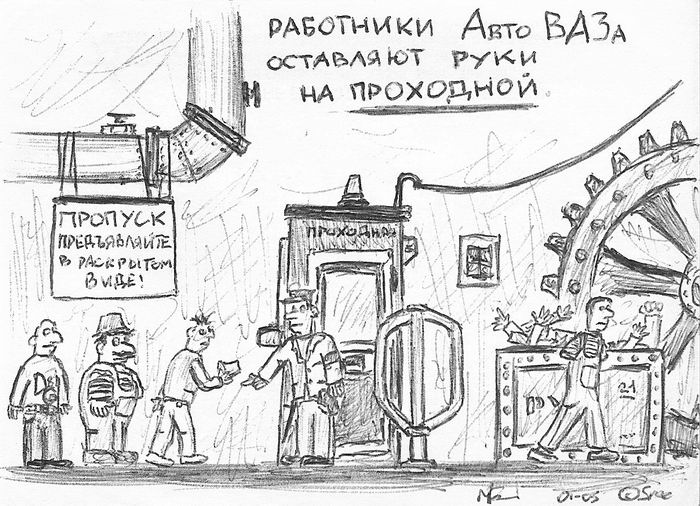 РАБОТНИКИ АВТО ВАЗА
ОСТАВЛЯЮТ РУКИ
НА ПРОХОДНОЙ.
ПРОПУСК
ПРЕДЪЯВЛЯЙТЕ
В РАСКРЫТОМ
ВИДЕ!
ПРОХОДНАЯ
21
01-05